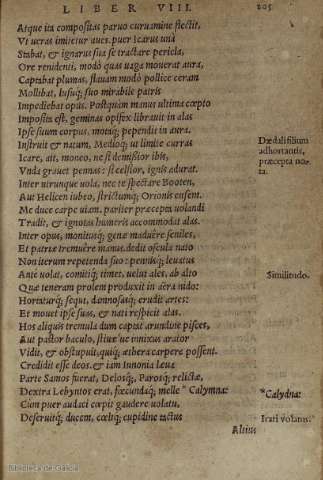 LIBER VIII. 205
Atque ita compositas paruo curuamine flectit,
Vt ueras imitetur aues. puer Icarus unà
Stabat, & ignarus sua se tractare pericla,
Ore renidenti, modò quas uaga mouerat aura,
Captabat plumas, flauam modò pollice ceram
Mollibat, lusuq; suo mirabile patris
Impediebat opus. Postquam manus ultima cœpto
Imposita est, geminas opifex librauit in alas
Ipse suum corpus, motaq; pependit in aura.
Instruit & natum, Medioq; ut limite curras
Dædali filium
Icare, ait, moneo, ne si demissior ibis,
adhortantis,
Vnda grauet pennas: si celsior, ignis adurat.
præcepta no-
ta.
Inter utrunque uola, nec te spectare Booten,
Aut Helicen iubeo, strictumq; Orionis ensem.
Me duce carpe uiam. pariter præcepta uolandi
Tradit, & ignotas humeris accommodat alas.
Inter opus, monitusq; genæ maduêre seniles,
Et patriæ tremuêre manus. dedit oscula nato
Non iterum repetenda suo: pennisq; leuatus
Antè uolat, comitiq; timet, uelut ales, ab alto
Similitudo.
Quæ teneram prolem produxit in aëra nido:
Hortaturq; sequi, damnosasq; erudit artes:
Et mouet ipse suas, & nati respicit alas.
Hos aliquis tremula dum captat arundine pisces,
Aut pastor baculo, stiuæ ue innixus arator
Vidit, & obstupuit, quiq; æthera carpere possent.
Credidit esse deos. & iam Iunonia leua
Parte Samos fuerat, Delosq;, Parosq; relictæ,
Dextra Lebyntos erat, fœcundaq; melle * Calymna:
*Calydna:
Cùm puer audaci cœpit gaudere uolatu,
Deseruitq; ducem, cœliq; cupidine tactus
Icari volatus.
Altius
Biblioteca de Galicia